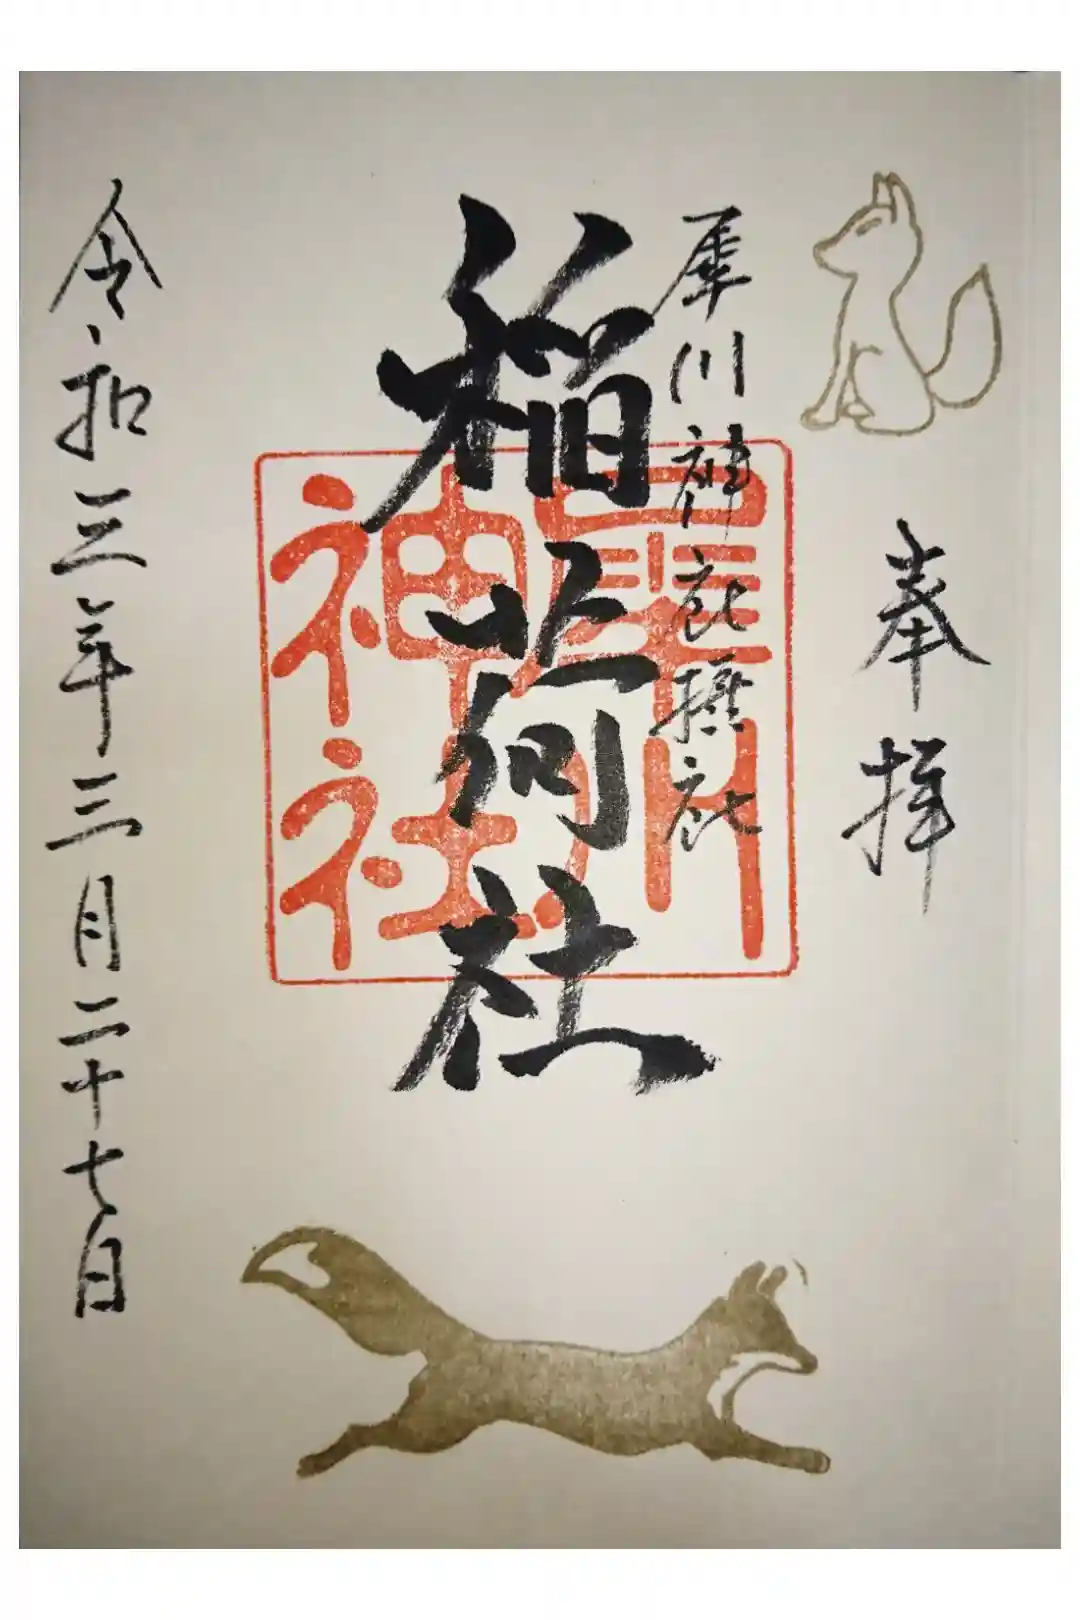 奉拝
犀川神社摂社
稲荷社
犀川
神社
令和三年三月二十七日